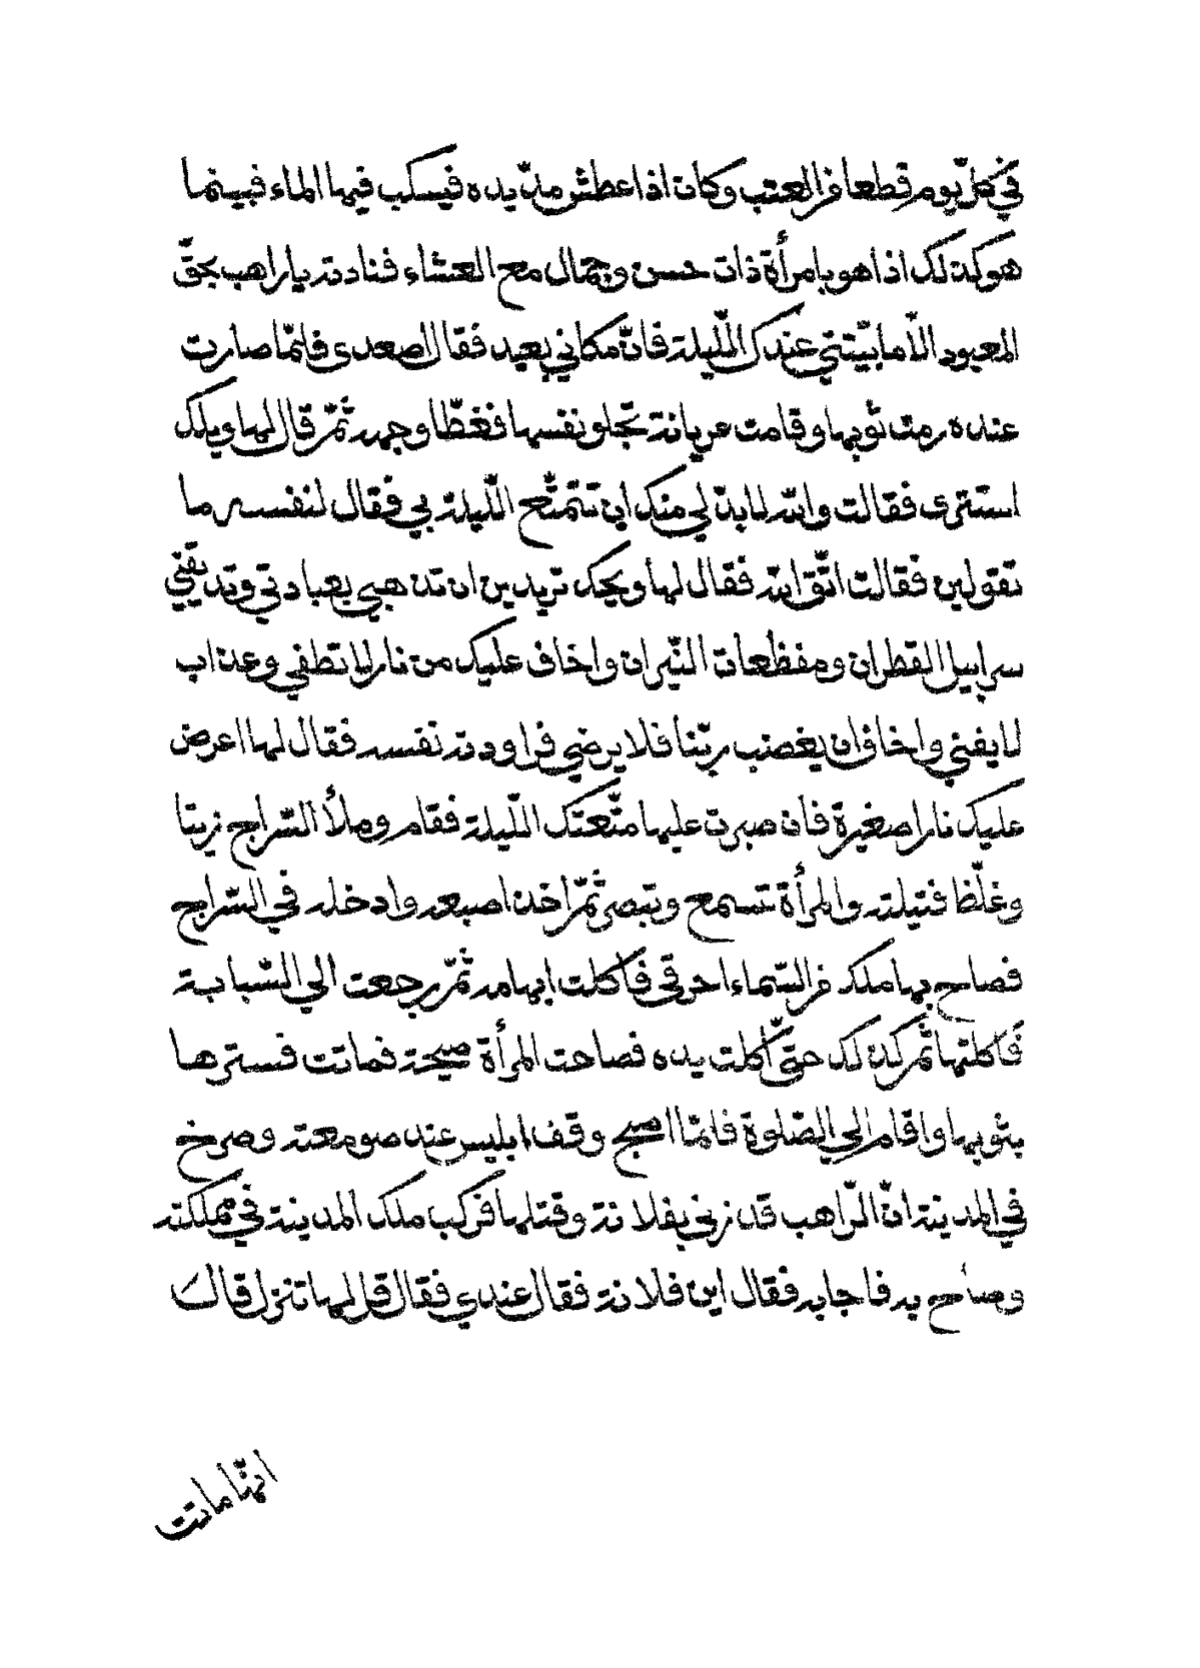 في كلّ يوم قطعا من العنب وكان اذا عطش مدّ يده فيسكب فيها الماء فبينما
هو كذلك اذا هو بامرأة ذات حسن وجمال مع العشاء فنادته يا راهب بحقّ
المعبود الّا ما بيّتّني عندك اللّيلة فانّ مكاني بعيد فقال اصعدى فلمّا صارت
عنده رمت ثوبها وقامت عريانة تجلو نفسها فغطّا وجهه ثمّ قال لها ويلك
استترى فقالت والله لا بدّ لي منك ان تتمتّع اللّيلة بي فقال لنفسه ما
تقولين فقالت اتّق الله فقال لها ويحك تريدين ان تذهبي بعبادتي وتذيقني
سرابيل القطران ومفظعات النّيران واخاف عليك من نار لا تطفي وعذاب
لا يفني واخاف ان يغضب ربّنا فلا يرضي فراودته نفسه فقال لها اعرض
عليك نارا صغيرة فان صبرت عليها متّعتك اللّيلة فقام وملأ السّراج زيتا
وغلّظا فتيلته والمرأة تسمع وتبصر ثمّ اخذ اصبعه وادخله في السّراج
فصاح بها ملك من السّماء احرقي فاكلت ابهامه ثمّ رجعت الي السّبابة
فاكلتها ثم كذلك حتّى اكلت يده فصاحت المرأة صيحة فماتت فسترها
بثوبها واقام الي الصّلوة فلمّا اصبح وقف ابليس عند صومعته وصرخ
في المدينة انّ الرّاهب قد زني بفلانة وقتلها فركب ملك المدينة في مملكته
وصاح به فاجابه فقال اين فلانة فقال عندي فقال قل لها تنزل قال
انّها ماتت